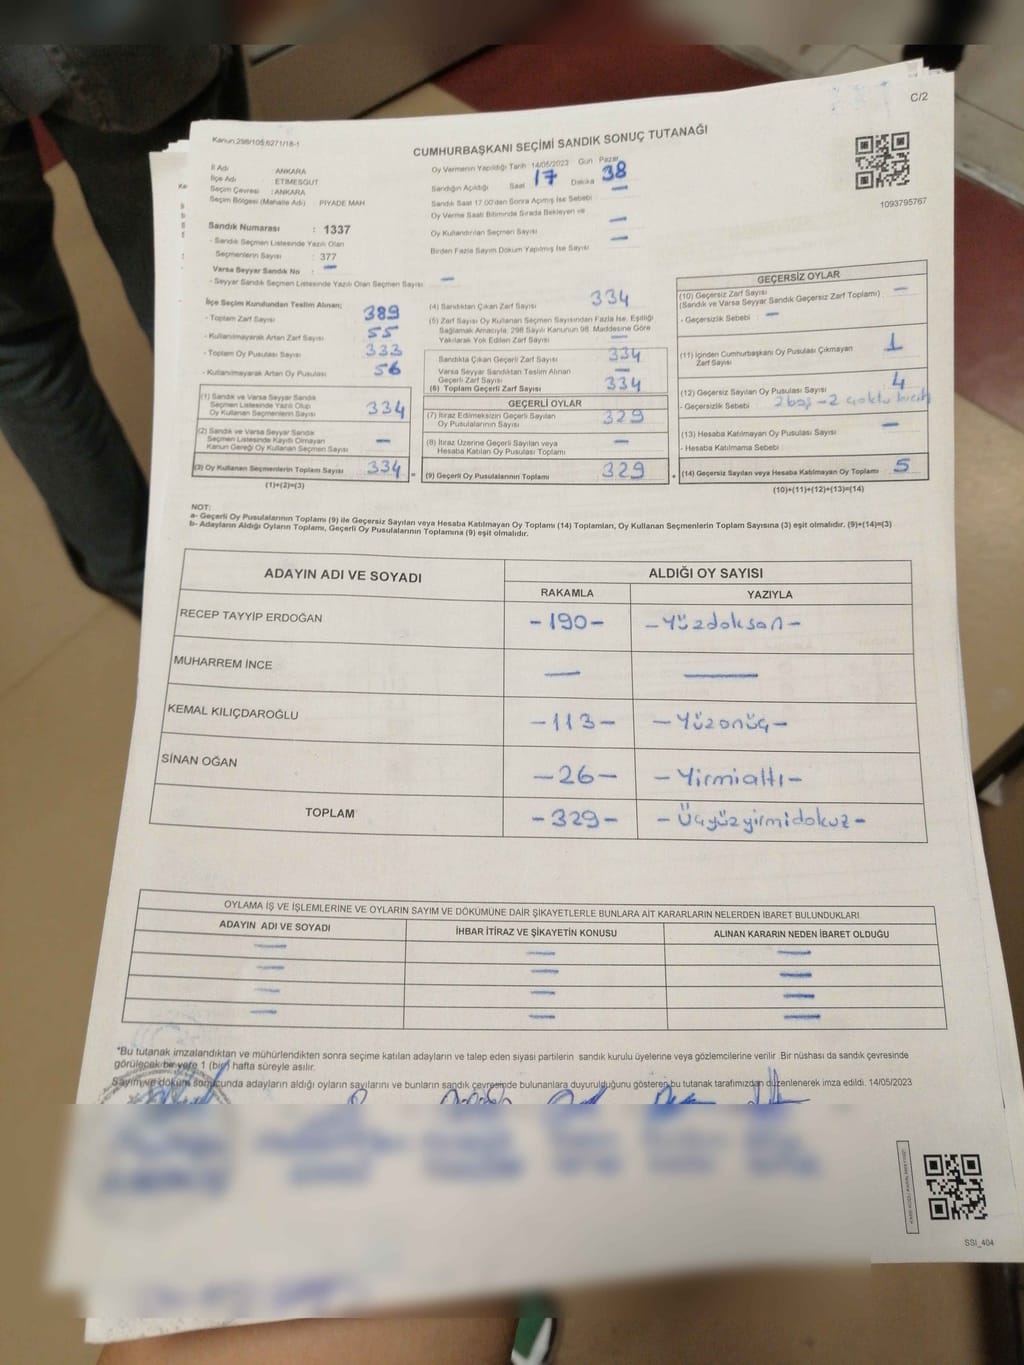 C/2
Kanun:298/105;6271/18-1
CUMHURBAŞKANI SEÇİMİ SANDIK SONUÇ TUTANAĞI
1093795767
İl Adı ANKARA
İlçe Adı ETİMESGUT
Seçim Çevresi :ANKARA
Seçim Bölgesi (Mahalle Adı) : PİYADE MAH
Sandık Numarası : 1337
- Sandık Seçmen Listesinde Yazılı Olan
Seçmenlerin Sayısı : 377
Varsa Seyyar Sandık No : —
- Seyyar Sandık Seçmen Listesinde Yazılı Olan Seçmen Sayısı —
Oy Vermenin Yapıldığı Tarih 14/05/2023 Gün Pazar
Sandığın Açıldığı Saat 17 Dakika 38
Sandık Saat 17.00'dan Sonra Açılmış İse Sebebi —
Oy Verme Saati Bitiminde Sırada Bekleyen ve
Oy Kullandırılan Seçmen Sayısı —
Birden Fazla Sayım Döküm Yapılmış İse Sayısı —
İlçe Seçim Kurulundan Teslim Alınan;
- Toplam Zarf Sayısı 389
- Kullanılmayarak Artan Zarf Sayısı 55
- Toplam Oy Pusulası Sayısı 333
- Kullanılmayarak Artan Oy Pusulası 56
(1) Sandık ve Varsa Seyyar Sandık
Seçmen Listesinde Yazılı Olup
Oy Kullanan Seçmenlerin Sayısı 334
(2) Sandık ve Varsa Seyyar Sandık
Seçmen Listesinde Kayıtlı Olmayan
Kanun Gereği Oy Kullanan Seçmen Sayısı —
(3) Oy Kullanan Seçmenlerin Toplam Sayısı 334
(1)+(2)=(3)
(4) Sandıktan Çıkan Zarf Sayısı 334
(5) Zarf Sayısı Oy Kullanan Seçmen Sayısından Fazla İse, Eşitliği
Sağlamak Amacıyla, 298 Sayılı Kanunun 98. Maddesine Göre
Yakılarak Yok Edilen Zarf Sayısı —
Sandıkta Çıkan Geçerli Zarf Sayısı 334
Varsa Seyyar Sandıktan Teslim Alınan
Geçerli Zarf Sayısı —
(6) Toplam Geçerli Zarf Sayısı 334
GEÇERLİ OYLAR
(7) İtiraz Edilmeksizin Geçerli Sayılan
Oy Pusulalarının Sayısı 329
(8) İtiraz Üzerine Geçerli Sayılan veya
Hesaba Katılan Oy Pusulası Toplamı —
= (9) Geçerli Oy Pusulalarının Toplamı 329
GEÇERSİZ OYLAR
(10) Geçersiz Zarf Sayısı —
(Sandık ve Varsa Seyyar Sandık Geçersiz Zarf Toplamı)
- Geçersizlik Sebebi : —
(11) İçinden Cumhurbaşkanı Oy Pusulası Çıkmayan
Zarf Sayısı 1
(12) Geçersiz Sayılan Oy Pusulası Sayısı 4
- Geçersizlik Sebebi 2 boş - 2 çoklu
(13) Hesaba Katılmayan Oy Pusulası Sayısı —
- Hesaba Katılmama Sebebi
+ (14) Geçersiz Sayılan veya Hesaba Katılmayan Oy Toplamı 5
(10)+(11)+(12)+(13)=(14)
NOT:
a- Geçerli Oy Pusulalarının Toplamı (9) ile Geçersiz Sayılan veya Hesaba Katılmayan Oy Toplamı (14) Toplamları, Oy Kullanan Seçmenlerin Toplam Sayısına (3) eşit olmalıdır. (9)+(14)=(3)
b- Adayların Aldığı Oyların Toplamı, Geçerli Oy Pusulalarının Toplamına (9) eşit olmalıdır.
ADAYIN ADI VE SOYADI ALDIĞI OY SAYISI
RAKAMLA YAZIYLA
RECEP TAYYİP ERDOĞAN -190- -Yüzdoksan-
MUHARREM İNCE — —
KEMAL KILIÇDAROĞLU -113- -Yüzonüç-
SİNAN OĞAN -26- -Yirmialtı-
TOPLAM -329- -Üçyüzyirmidokuz-
OYLAMA İŞ VE İŞLEMLERİNE VE OYLARIN SAYIM VE DÖKÜMÜNE DAİR ŞİKAYETLERLE BUNLARA AİT KARARLARIN NELERDEN İBARET BULUNDUKLARI
ADAYIN ADI VE SOYADI İHBAR İTİRAZ VE ŞİKAYETİN KONUSU ALINAN KARARIN NEDEN İBARET OLDUĞU
— — —
— — —
— — —
— — —
*Bu tutanak imzalandıktan ve mühürlendikten sonra seçime katılan adayların ve talep eden siyasi partilerin sandık kurulu üyelerine veya gözlemcilerine verilir. Bir nüshası da sandık çevresinde
görülecek bir yere 1 (bir) hafta süreyle asılır.
Sayım ve döküm sonucunda adayların aldığı oyların sayılarını ve bunların sandık çevresinde bulunanlara duyurulduğunu gösteren bu tutanak tarafımızdan düzenlenerek imza edildi. 14/05/2023
SSI_404